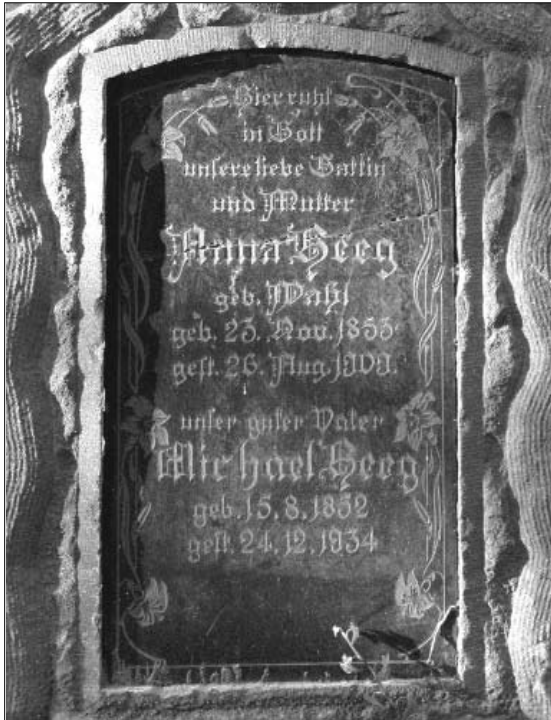 Hier ruht
in Gott
unsere liebe Gattin
und Mutter
Anna Heeg
geb. Wahl
geb. 23. Nov. 1855
gest. 26. Aug. 1909.
unser guter Vater
Michael Heeg
geb. 15. 8. 1852
gest. 24. 12. 1934